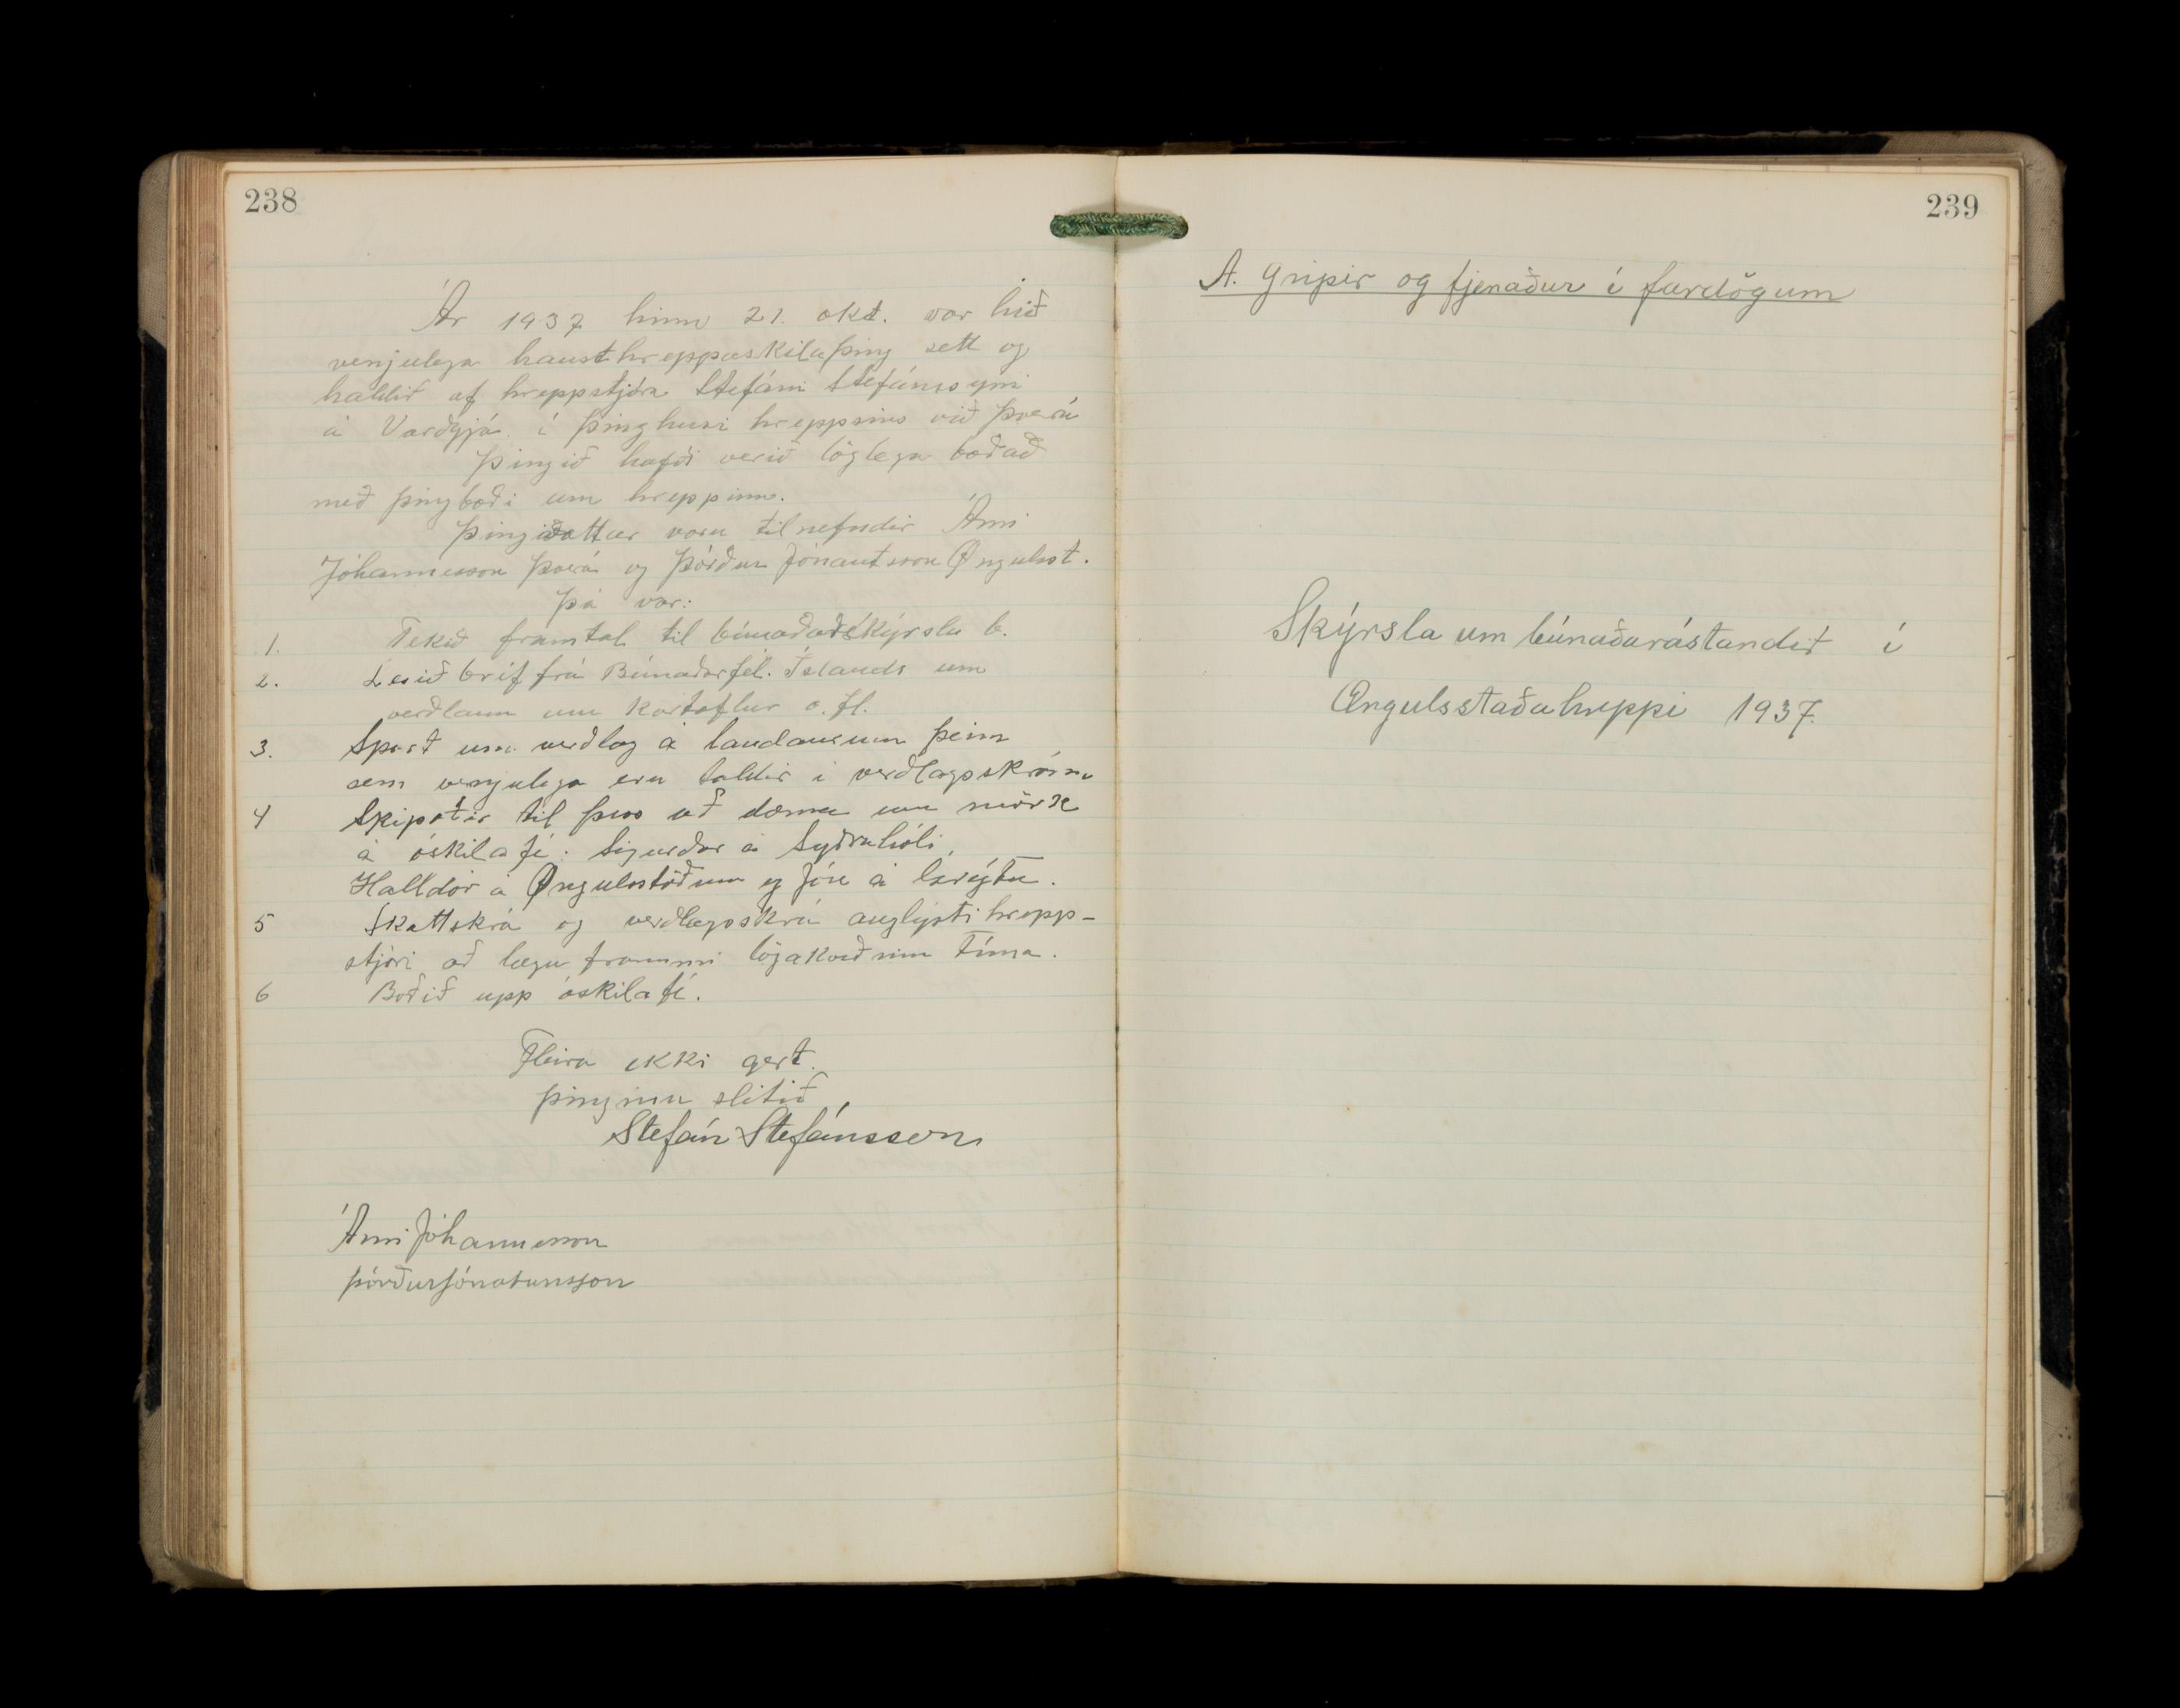 238
Ár 1937 hinn 21. okt. var hið
venjulega hausthreppaskilaþing sett og
haldið af hreppstjóra Stefáni Stefánssyni
á Varðgjá í þinghúsi hreppsins við Þverá
Þingið hafði verið löglega boðað
með þingboði um hreppinn.
Þingvottar voru tilnefndir Árni
Jóhannesson Þverá og Þórður Jónantsson Øngulsst.
Þá var:
1. Tekið framtal til búnaðarskýrslu b.
2. Lesið bréf frá Búnaðarfél. Íslands um
verðlaun um kartöflur o. fl.
3. Spurt um verðlag á landaurum þeim
sem venjulega eru taldir í verðlagsskránni
4 Skipaðir til þess að dæma um mörk
á óskilafé: Sigurður á Syðrahóli,
Halldór á Øngulsstöðum og Jón á
5 Skattskrá og verðlagsskrá auglýsti hrepp-
stjóri að lægu frammi lögákveðinn tíma.
6 Boðið upp óskilafé.
Fleira ekki gert.
þinginu slitið
Stefán Stefánsson
Árni Jóhannesson
Þórður Jónatansson
239
A. Gripir og fjenaður í fardögum
Skýrsla um búnaðarástandið í
Øngulsstaðahreppi 1937.